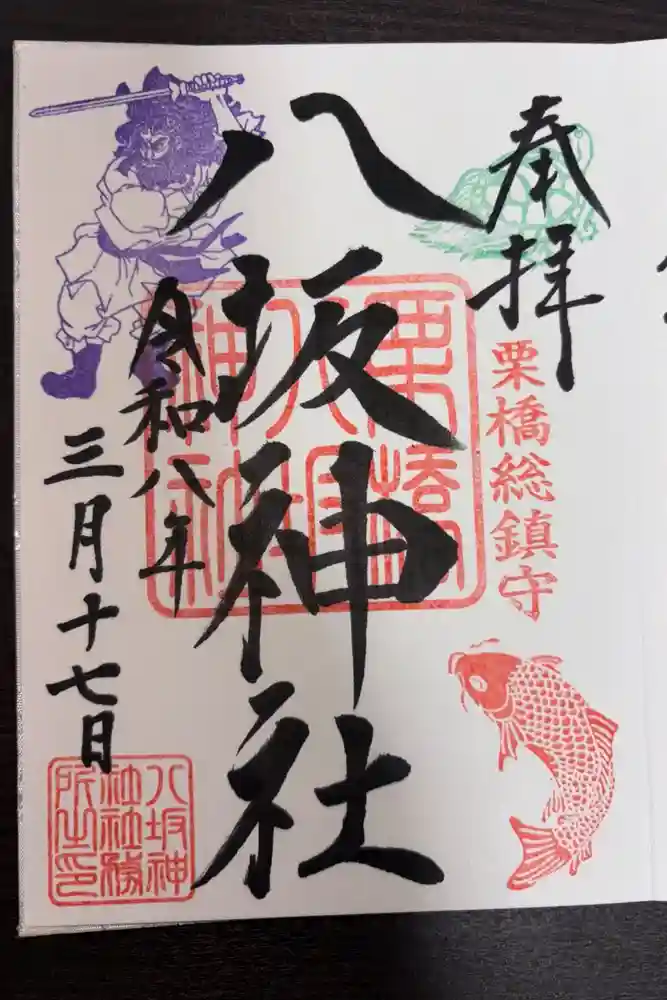 奉拝
栗橋総鎮守
栗橋
八坂
神社
八坂神社
令和八年
三月十七日
八坂神
社社務
所之印